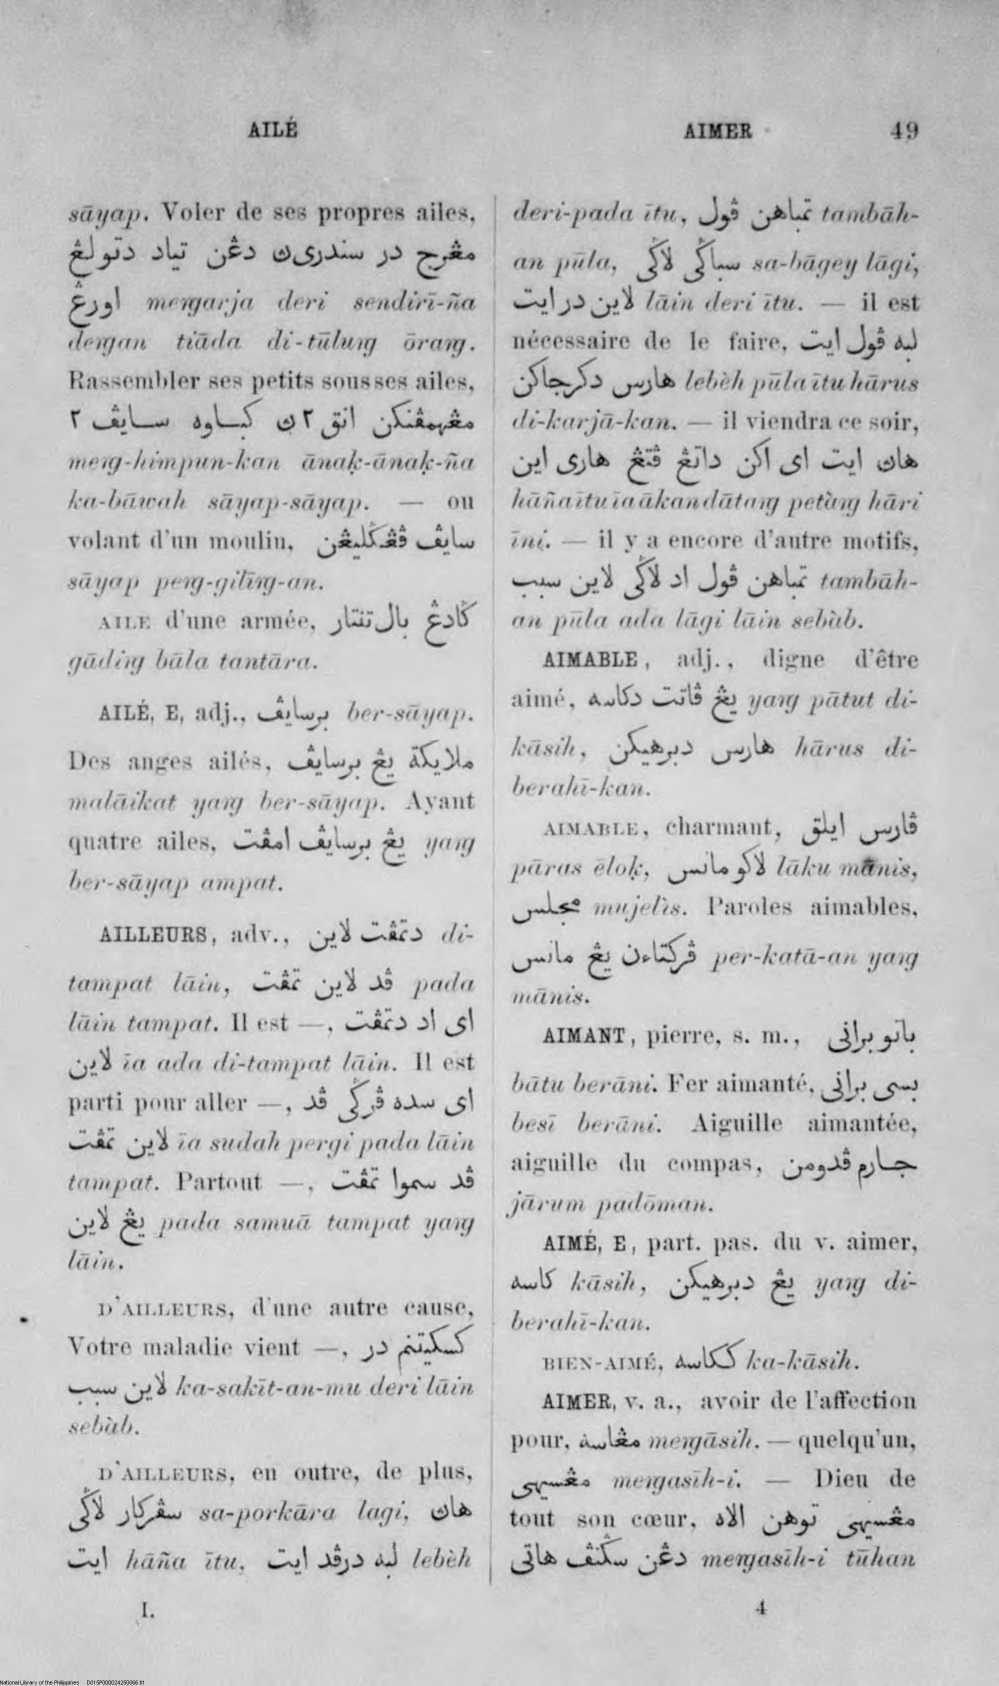 AILÉ
AIMER
49
sāyap. Voler de ses propres ailes,
مڠرج در سندري٢ن دڠن تياد دتولڠ
اورڠ meṅgarja deri sendirī-ña
deṅgan tiāda di-tūluṅg ōraṅg.
Rassembler ses petits sous ses ailes,
مڠهمڤنكن انق٢ن كباوه سايڤ٢
meṅg-himpun-kan ānaḳ-ānaḳ-ña
ka-bāwah sāyap-sāyap. — ou
volant d'un moulin, سايڤ ڤڠݢليڠن
sāyap peṅg-gilīṅg-an.
AILE d'une armée, ݢادڠ بال تنتار
gādiṅg bāla tantāra.
AILÉ, E, adj., برسايڤ ber-sāyap.
Des anges ailés, ملايكة يڠ برسايڤ
malāikat yaṅg ber-sāyap. Ayant
quatre ailes, يڠ برسايڤ امڤت yaṅg
ber-sāyap ampat.
AILLEURS, adv., دتمڤت لاين di-
tampat lāin, ڤد لاين تمڤت pada
lāin tampat. Il est —, اي اد دتمڤت
لاين īa ada di-tampat lāin. Il est
parti pour aller —, اي سده ڤرݢي ڤد
لاين تمڤت īa sudah pergi pada lāin
tampat. Partout —, ڤد سموا تمڤت
يڠ لاين pada samuā tampat yaṅg
lāin.
D'AILLEURS, d'une autre cause,
Votre maladie vient —, كسكيتنم در
لاين سبب ka-sakīt-an-mu deri lāin
sebàb.
D'AILLEURS, en outre, de plus,
سڤركار لاݢي sa-porkāra lagi, هاڽ
ايت hāña ītu, لبه درڤد ايت lebèh
I.
deri-pada ītu, تمباهن ڤول tambāh-
an pūla, سباݢي لاݢي sa-bāgey lāgi,
لاين در ايت lāin deri ītu. — il est
nécessaire de le faire, لبه ڤول ايت
هارس دكرجاكن lebèh pūla ītu hārus
di-karjā-kan. — il viendra ce soir,
هاڽ ايت اي اكن داتڠ ڤتڠ هاري اين
hāña ītu īa ākan dātaṅg petàṅg hāri
īni. — il y a encore d'autre motifs,
تمباهن ڤول اد لاݢي لاين سبب tambāh-
an pūla ada lāgi lāin sebàb.
AIMABLE, adj., digne d'être
aimé, يڠ ڤاتت دكاسه yaṅg pātut di-
kāsih, هارس دبرهيكن hārus di-
berahī-kan.
AIMABLE, charmant, ڤارس ايلق
pāras ēloḳ, لاكو مانس lāku mānis,
مجلس mujelìs. Paroles aimables,
ڤركتاءن يڠ مانس per-katā-an yaṅg
mānis.
AIMANT, pierre, s. m., باتو براني
bātu berāni. Fer aimanté, بسي براني
besī berāni. Aiguille aimantée,
aiguille du compas, جارم ڤدومن
jārum padōman.
AIMÉ, E, part. pas. du v. aimer,
كاسه kāsih, يڠ دبرهيكن yaṅg di-
berahī-kan.
BIEN-AIMÉ, ككاسه ka-kāsih.
AIMER, v. a., avoir de l'affection
pour, مڠاسه meṅgāsih. — quelqu'un,
مڠسيهي meṅgasīh-i. — Dieu de
tout son cœur, مڠسيهي توهن الاه
دڠن سݢنڤ هاتي meṅgasīh-i tūhan
4
National Library of the Philippines